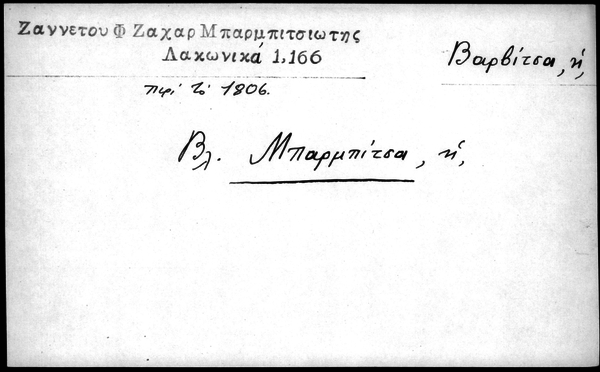 Ζαννετου Φ Ζαχαρ Μπαρμπιτσιωτης
Λακωνικά 1,166
Βαρβίτσα, ἡ,
περὶ τὸ 1806.
Βλ. Μπαρμπίτσα, ἡ,